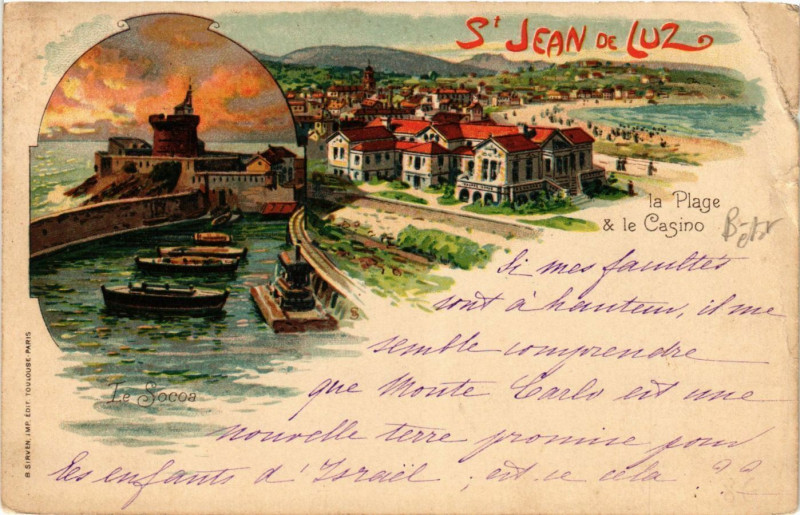 St JEAN DE LUZ
la Plage
& le Casino
Le Socoa
B. SIRVEN, IMP. ÉDIT. TOULOUSE PARIS
Si mes facultés
sont à hauteur, il me
semble comprendre
que Monte Carlo est une
nouvelle terre promise pour
les enfants d'Israël ; est-ce cela ??